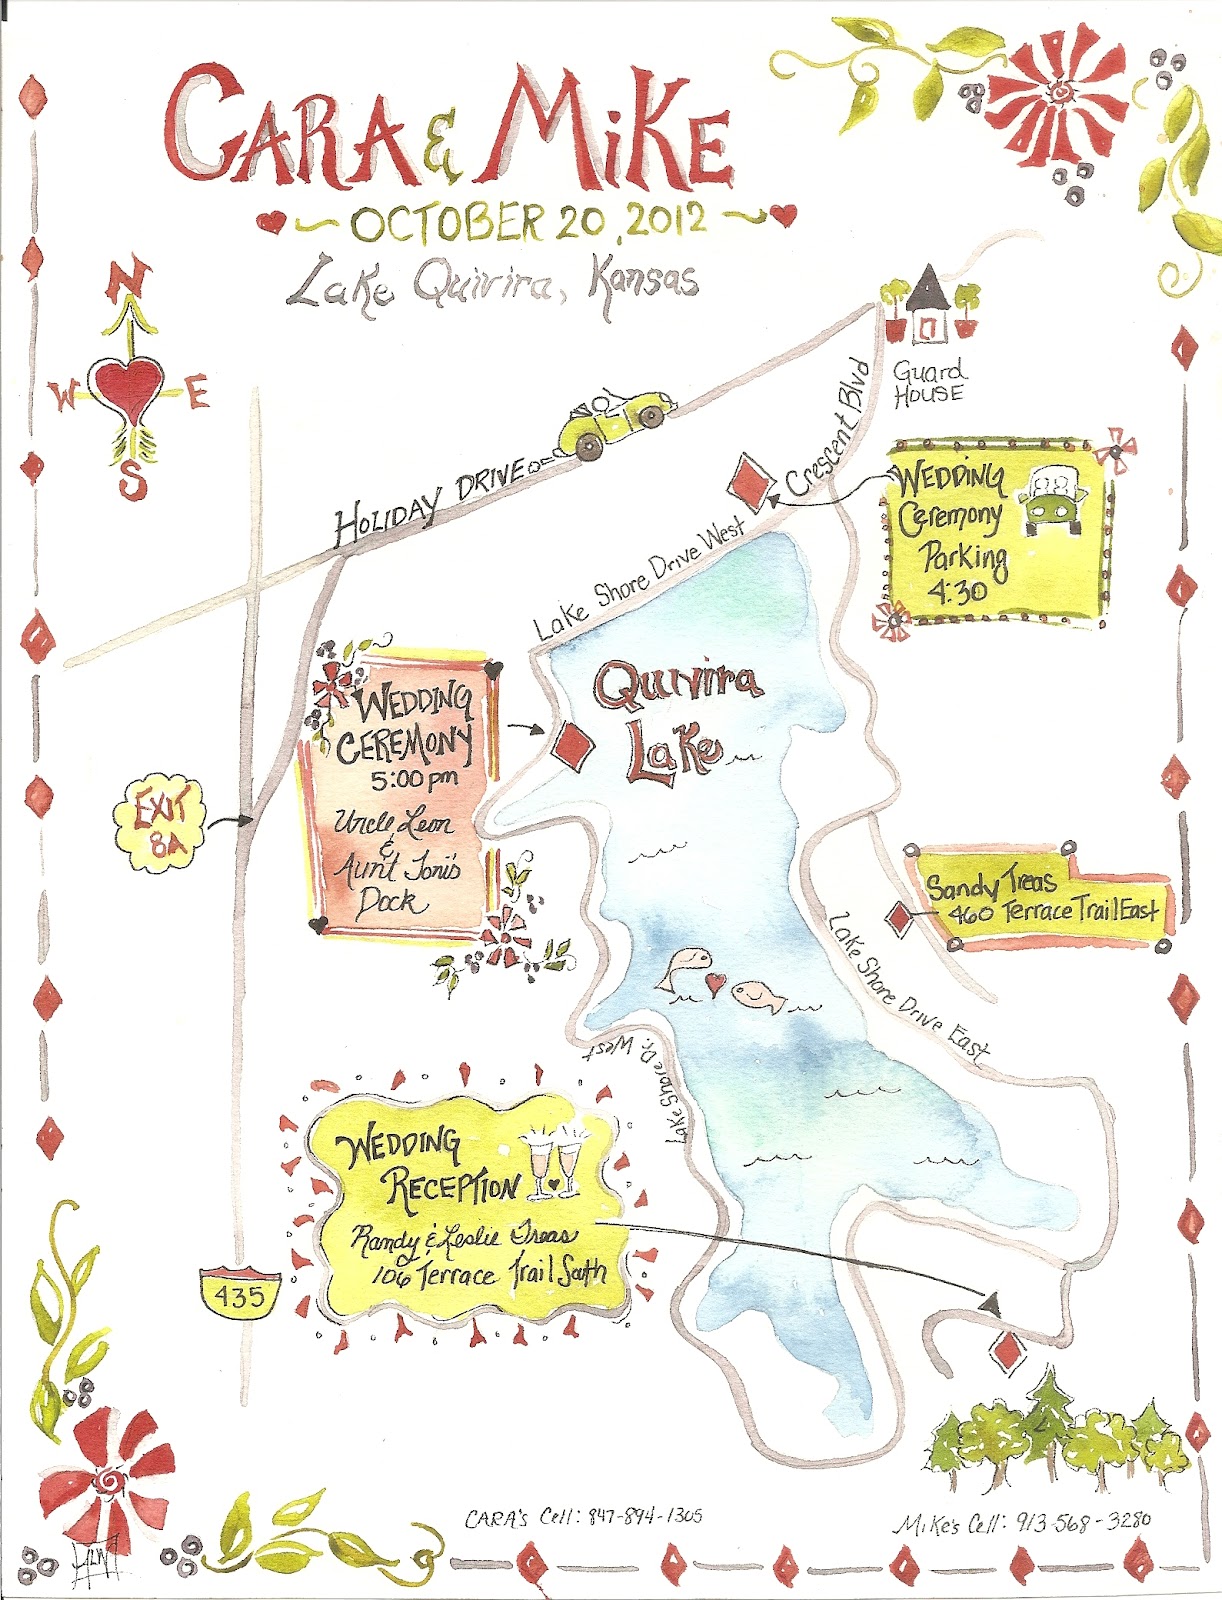 CARA & MiKE
~ OCTOBER 20, 2012 ~
Lake Quivira, Kansas
N
W E
S
Guard
HOUSE
HOLIDAY DRIVE
Crescent Blvd
Lake Shore Drive West
WEDDING
Ceremony
Parking
4:30
Quivira
Lake
WEDDING
CEREMONY
5:00 pm
Uncle Leon
&
Aunt Toni's
Dock
EXIT
8A
Sandy Treas
460 Terrace Trail East
Lake Shore Drive East
Lake Shore Dr. West
Lake Shore Dr.
WEDDING
RECEPTION
Randy & Leslie Treas
106 Terrace Trail South
435
CARA's Cell: 847-894-1305
MiKe's Cell: 913-568-3280